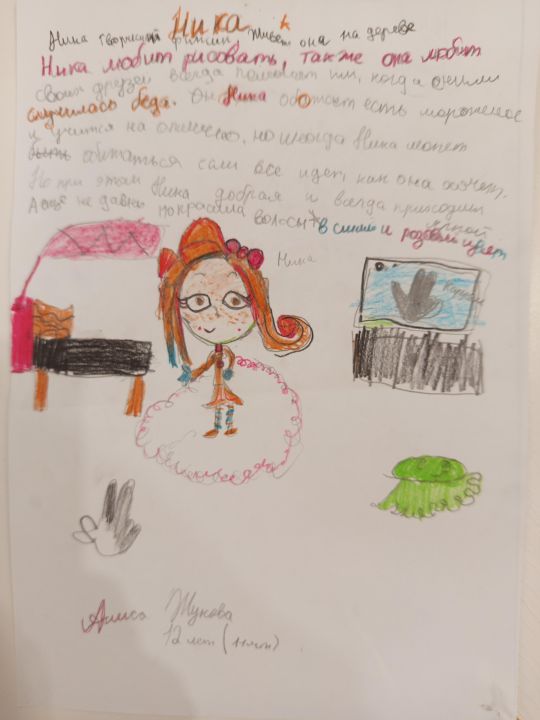 Ника
Ника творчиский живет она на дереве
Ника любит рисовать, также она любит
своих друзей всегда помогает им, когда с ними
случилась беда. Он Ника обожает есть мороженое
и учится на отлично, но иногда Ника может
обижаться если все идет, как она хочет.
Но при этом Ника добрая и всегда приходит
А еще не давно покрасила волосы в синий и розовый цвет
Ника
Алиса Жукова
12 лет